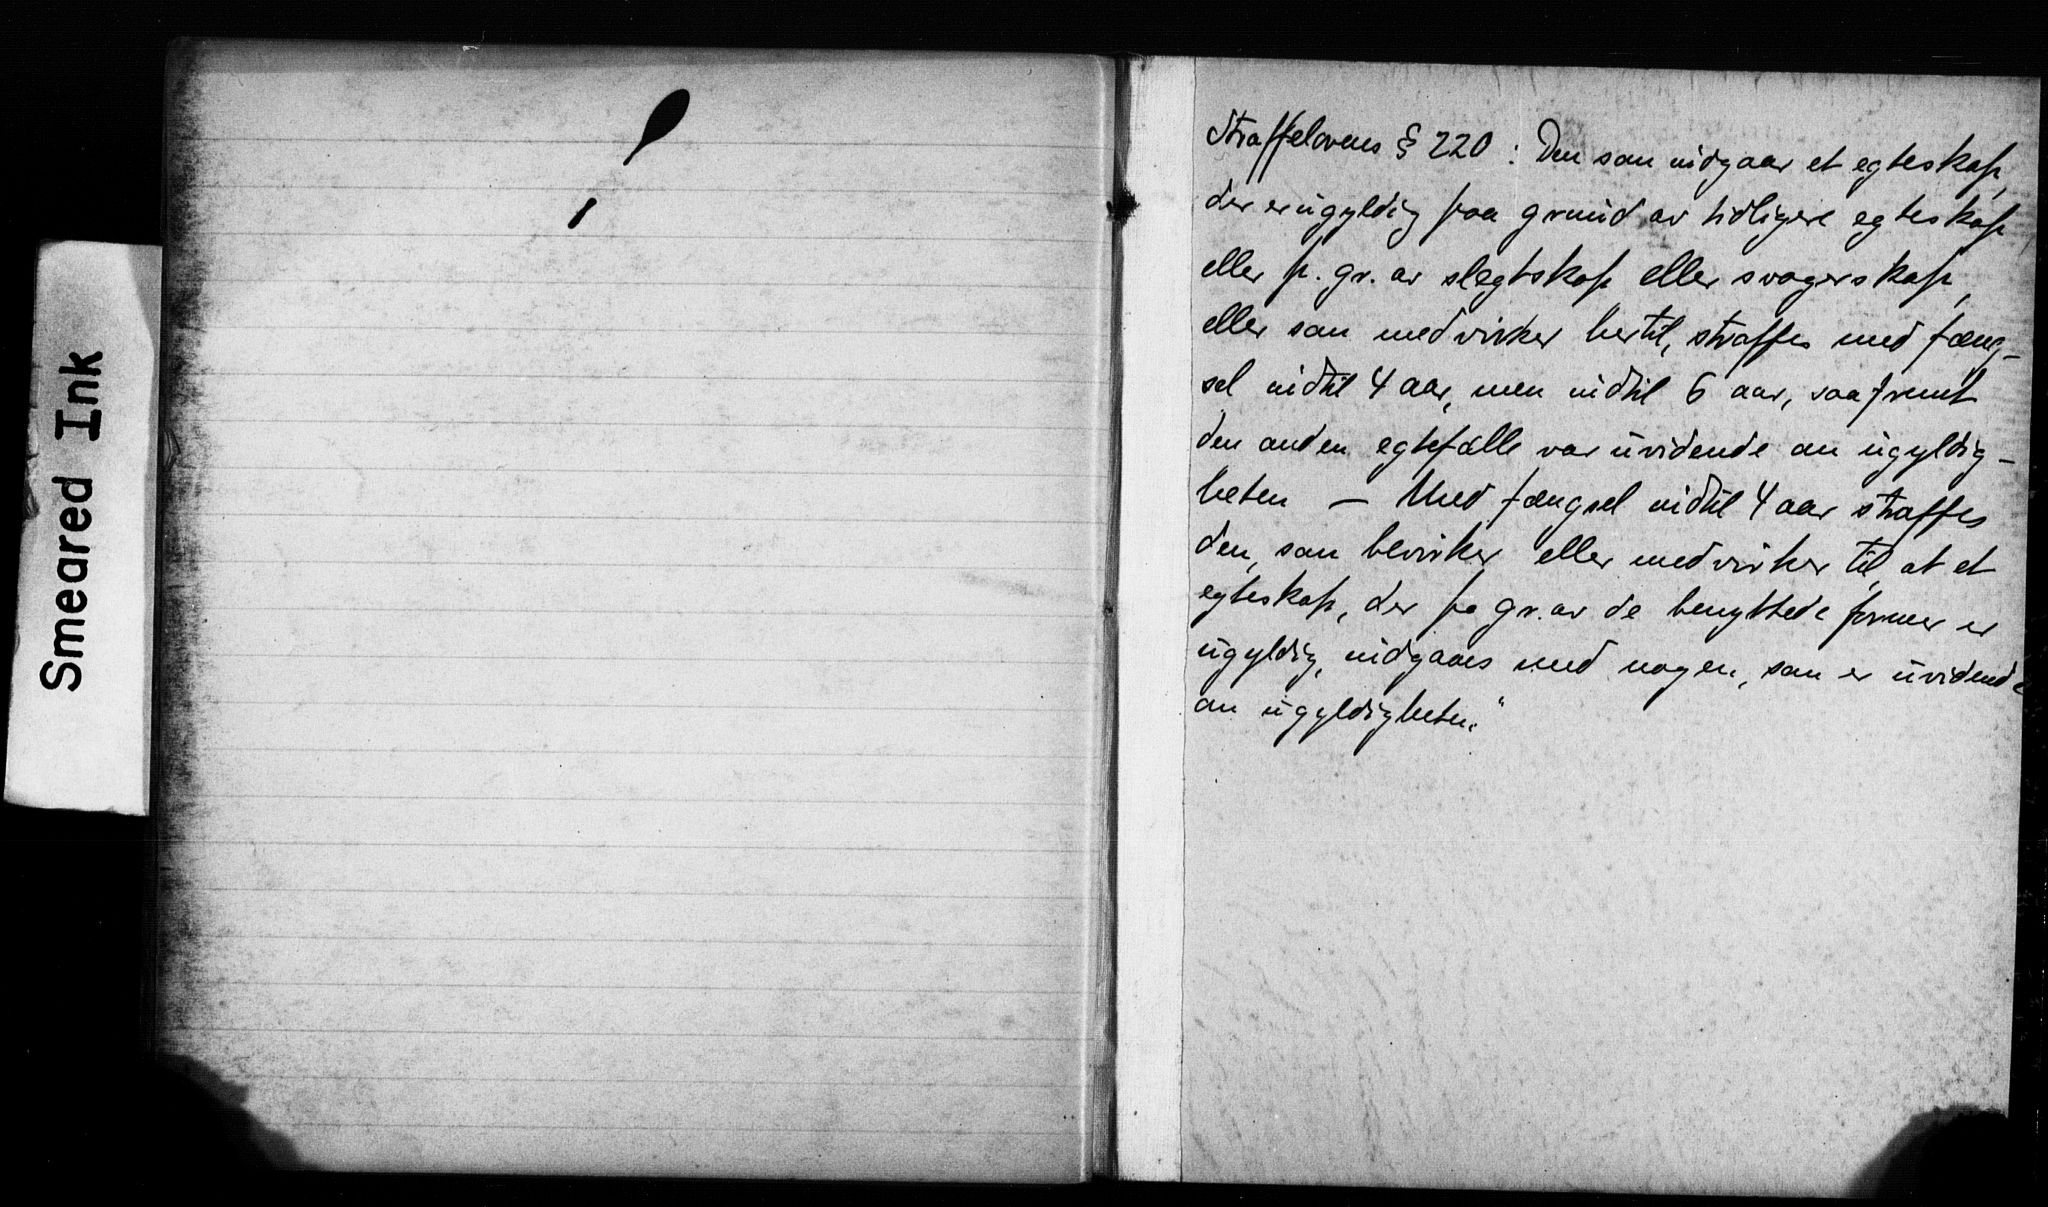 Smeared Ink
Straffelovens § 220 : Den som indgaar et egteskap,
der er ugyldig paa grund av tidligere egteskap,
eller p. gr. av slegtskap eller svogerskap,
eller som medvirker hertil, straffes med fæng-
sel indtil 4 aar, men indtil 6 aar, saafremt
den anden egtefælle var uvidende om ugyldig-
heten — Med fængsel indtil 4 aar straffes
den, som bevirker eller medvirker til, at et
egteskap, der pa gr. av de benyttede former er
ugyldig, indgaaes med nogen, som er uvidende
om ugyldigheten."